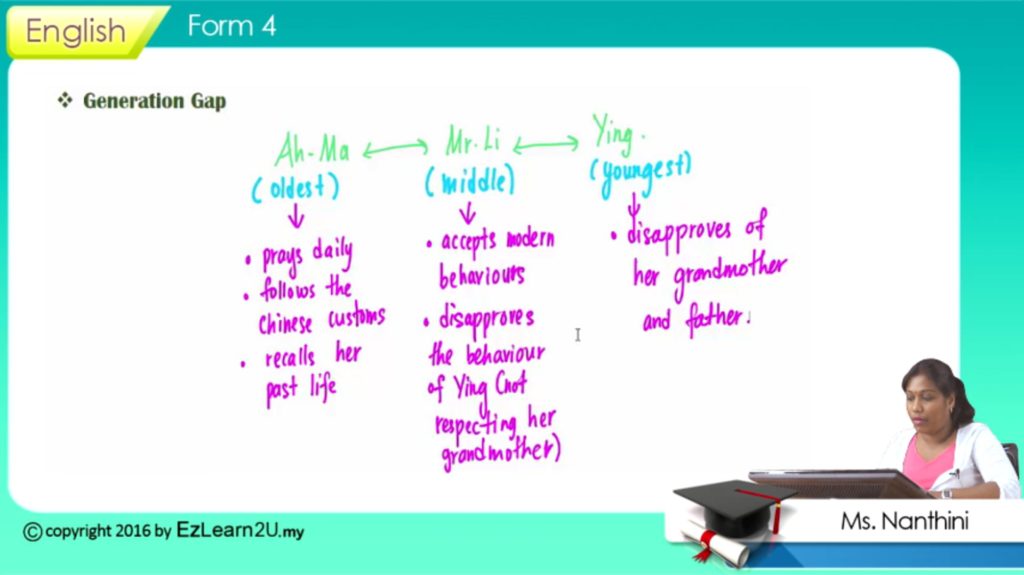 English
Form 4
❖ Generation Gap
Ah-Ma ↔ Mr. Li ↔ Ying.
(oldest)
(middle)
(youngest)
• prays daily
• follows the
Chinese customs
• recalls her
past life
• accepts modern
behaviours
• disapproves
the behaviour
of Ying (not
respecting her
grandmother)
• disapproves of
her grandmother
and father.
© copyright 2016 by EzLearn2U.my
Ms. Nanthini